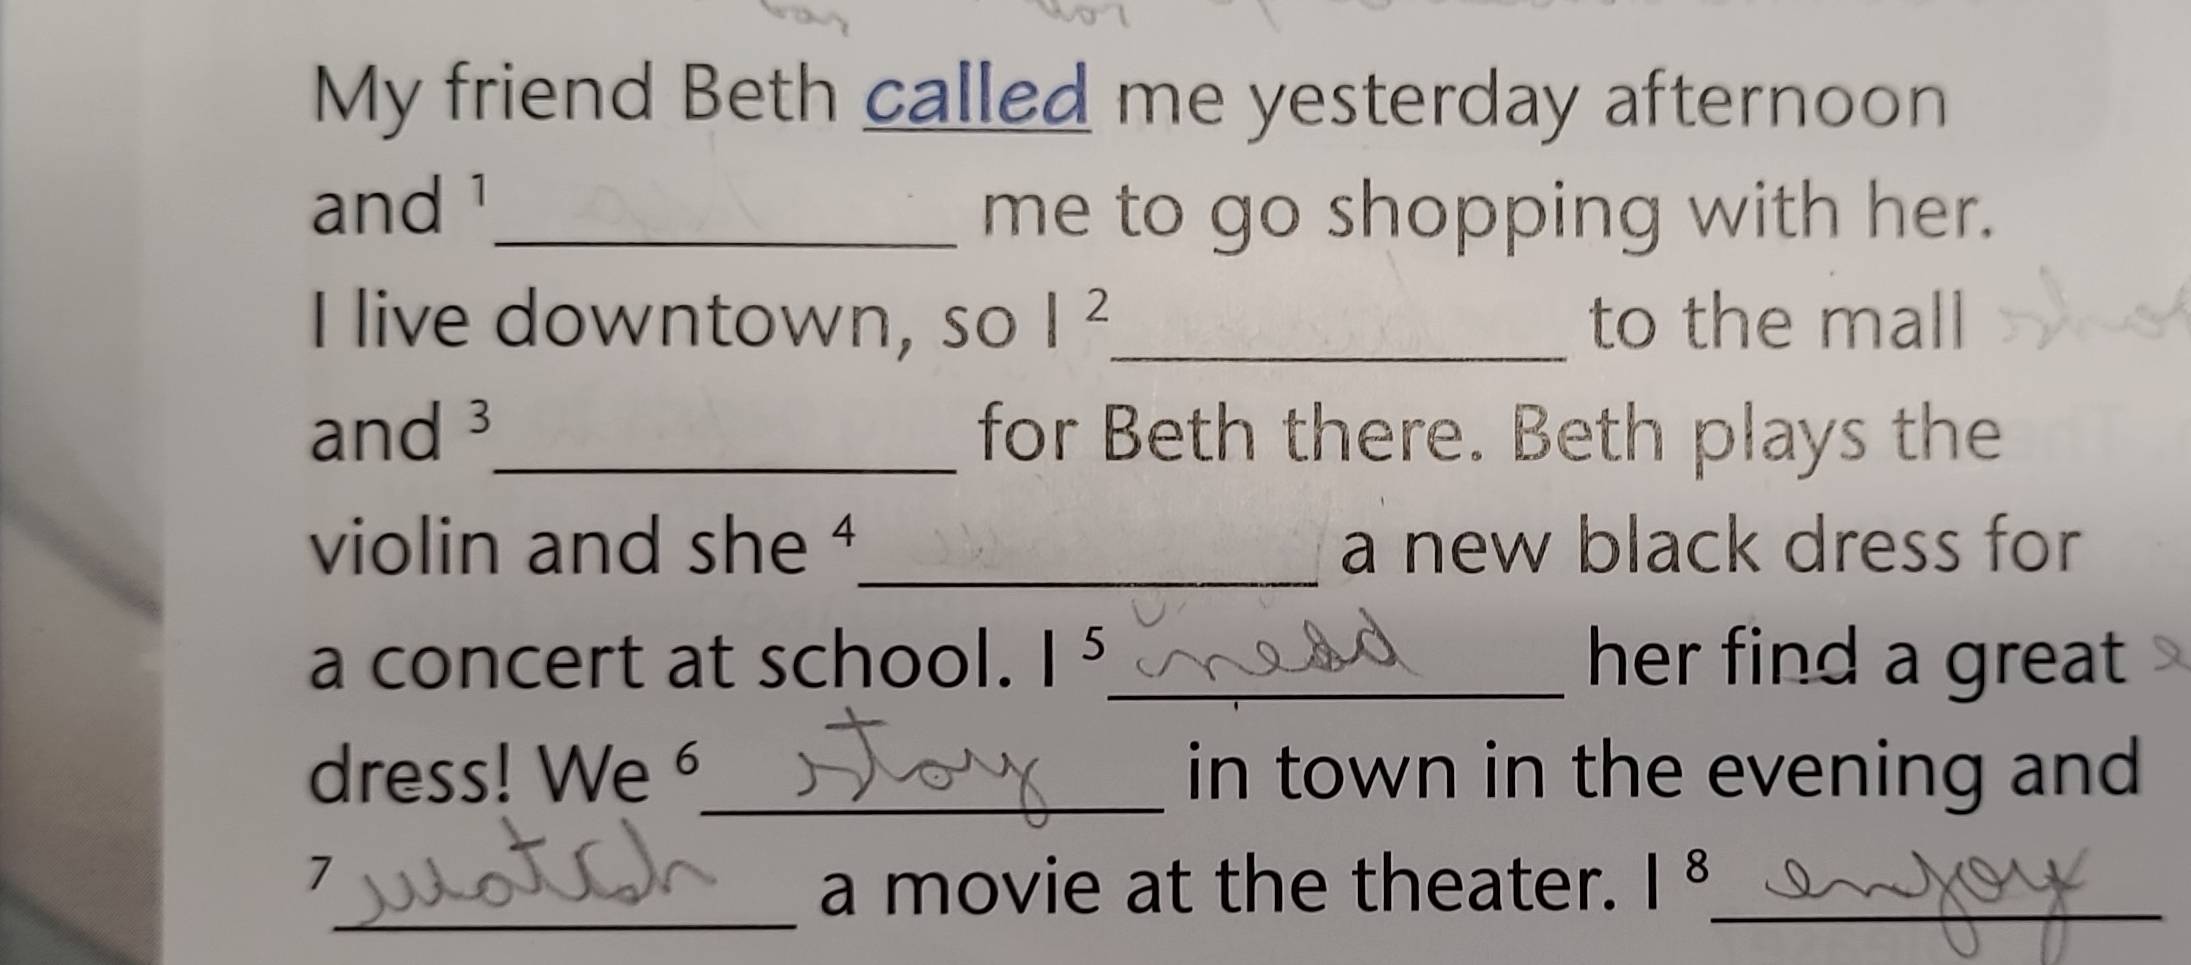 My friend Beth called me yesterday afternoon
and 1 ____________ me to go shopping with her.
I live downtown, so I 2 ____________ to the mall
and 3 ____________ for Beth there. Beth plays the
violin and she 4 ____________ a new black dress for
a concert at school. I 5 need her find a great
dress! We 6 stay in town in the evening and
7 watch a movie at the theater. I 8 enjoy